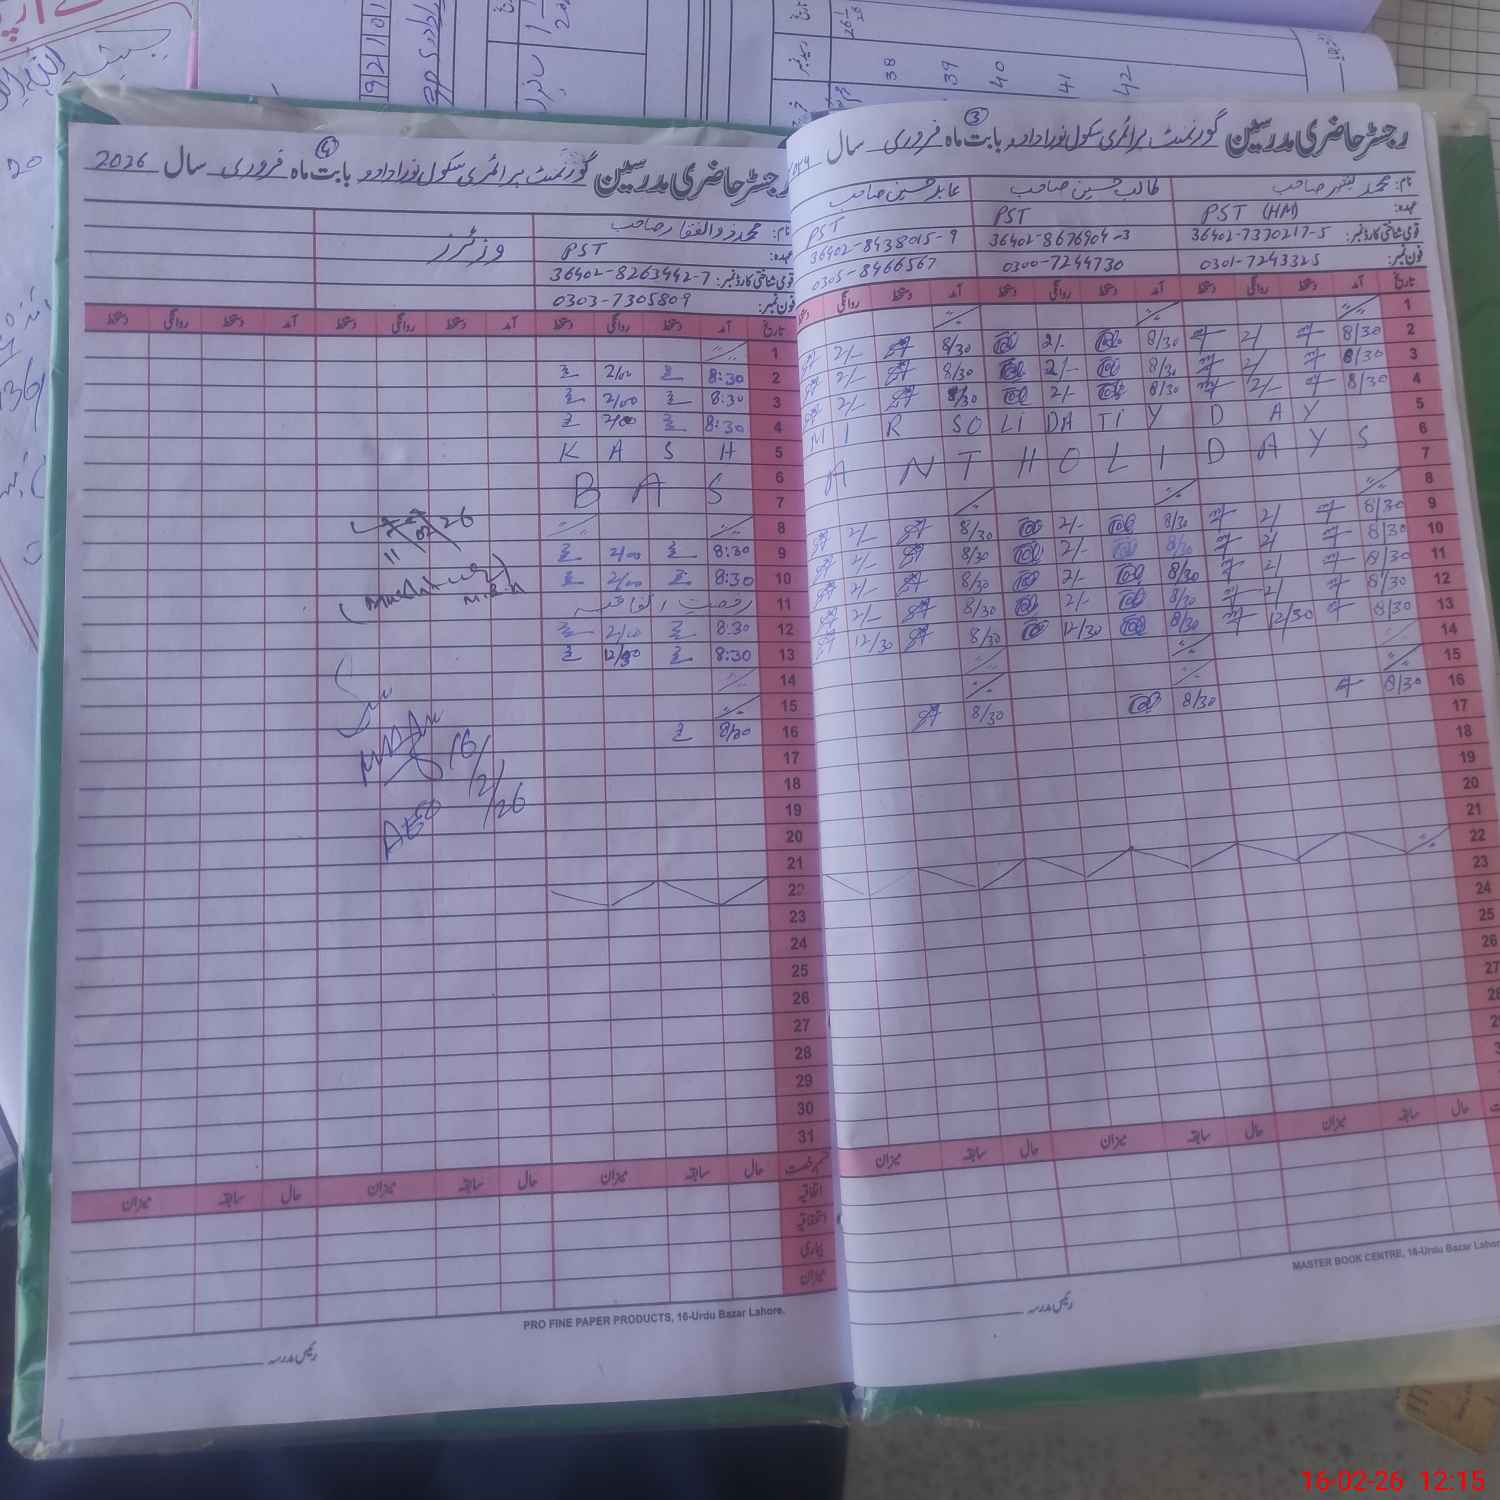 رجسٹر حاضری مدرسین گورنمنٹ پرائمری سکول نورا دادو بابت ماہ فروری سال
3
نام: محمد بشیر صاحب
طالب حسین صاحب
عابد حسین صاحب
عہدہ: PST (HM)
PST
PST
قومی شناختی کارڈ نمبر: 36402-7370217-5
36402-8676904-3
36402-8438015-9
فون نمبر: 0301-7243325
0300-7244730
0305-8466567
تاریخ آمد دستخط روانگی دستخط آمد دستخط روانگی دستخط آمد دستخط روانگی دستخط
1
2 8/30 2/ 8/30 2/- 8/30 2/-
3 8/30 2/ 8/30 2/- 8/30 2/-
4 8/30 2/- 8/30 2/- 8/30 2/-
5 MIR SOLIDATIY DAY
6 ANT HOLIDAYS
7
8
9 8/30 2/ 8/30 2/- 8/30 2/-
10 8/30 2/ 8/30 2/- 8/30 2/-
11 8/30 2/ 8/30 2/- 8/30 2/-
12 8/30 2/ 8/30 2/- 8/30 2/-
13 8/30 12/30 8/30 12/30 8/30 12/30
14
15
16 8/30 8/30 8/30
17
18
19
20
21
22
23
24
25
26
27
28
حال سابقہ میزان حال سابقہ میزان حال سابقہ میزان
رئیس مدرسہ
MASTER BOOK CENTRE, 16-Urdu Bazar Lahore
رجسٹر حاضری مدرسین گورنمنٹ پرائمری سکول نورا دادو بابت ماہ فروری سال 2026
4
نام: محمد ذوالفقار صاحب
وزیٹرز
عہدہ: PST
قومی شناختی کارڈ نمبر: 36402-8263442-7
فون نمبر: 0303-7305809
تاریخ آمد دستخط روانگی دستخط آمد دستخط روانگی دستخط آمد دستخط روانگی دستخط
1
2 8:30 2/00
3 8:30 2/00
4 8:30 2/00
5 KASH
6 BAS
7
8
9 8:30 2/00
10 8:30 2/00
11 رخصت اتفاقیہ
12 8:30 2/00
13 8:30 12/30
14
15
16 8/30
17
18
19
20
21
22
23
24
25
26
27
28
29
30
31
11 02 26
16/2/26
AEO
قسم رخصت حال سابقہ میزان حال سابقہ میزان حال سابقہ میزان
اتفاقیہ
استحقاقیہ
بیماری
میزان
PRO FINE PAPER PRODUCTS, 16-Urdu Bazar Lahore.
رئیس مدرسہ
38
39
40
41
42
16-02-26 12:15